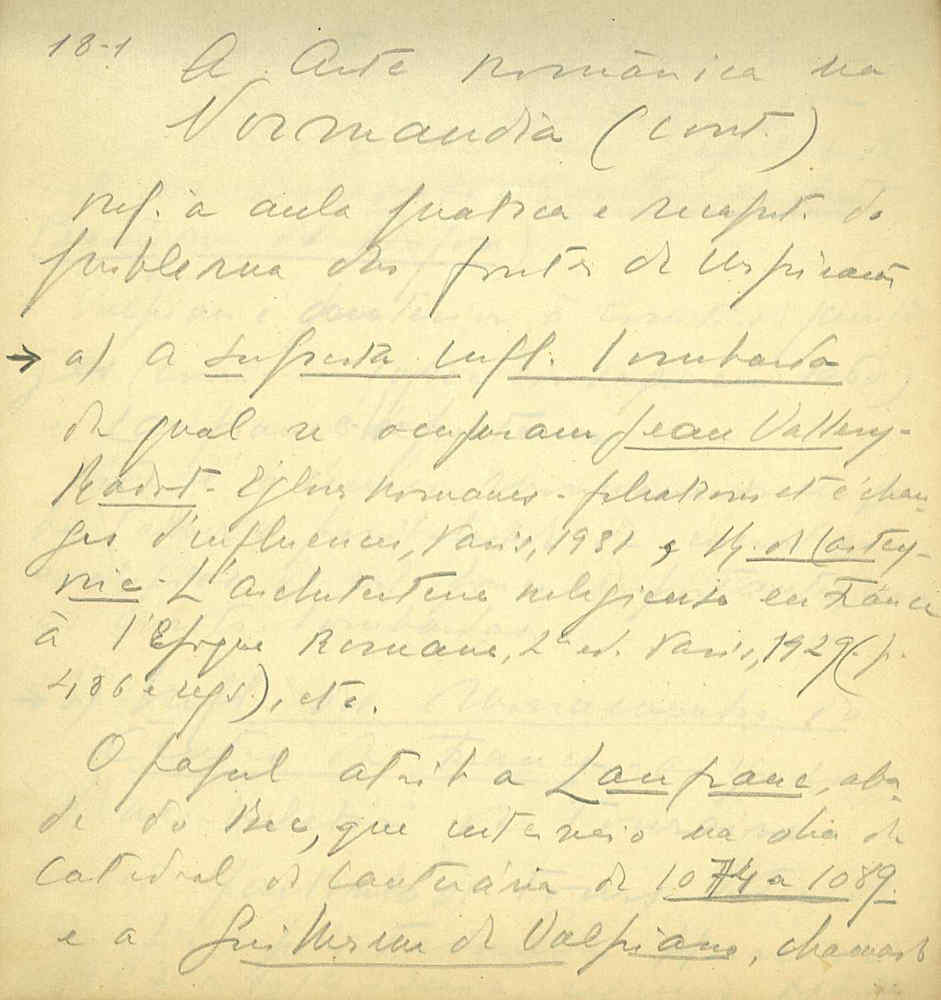 18-1
A Arte românica na
Normandia (cont.)
Ref. à aula prática e recapit. do
problema das fontes de inspiração
→ a) A suposta infl. lombarda
da qual se ocuparam Jean Vallery-
Radot - Églises romanes - filiations et échan-
ges d'influences, Paris, 1931 e R. de Lastey-
rie - L'architecture religieuse en France
à l'Époque Romane, 2ª ed. Paris, 1929 (p.
486 e segs.), etc.
O papel atrib. a Lanfranc, aba-
de do Bec, que interveio na obra da
Catedral de Cantuária de 1074 a 1089.
e a Guillerme de Volpiano, chamado